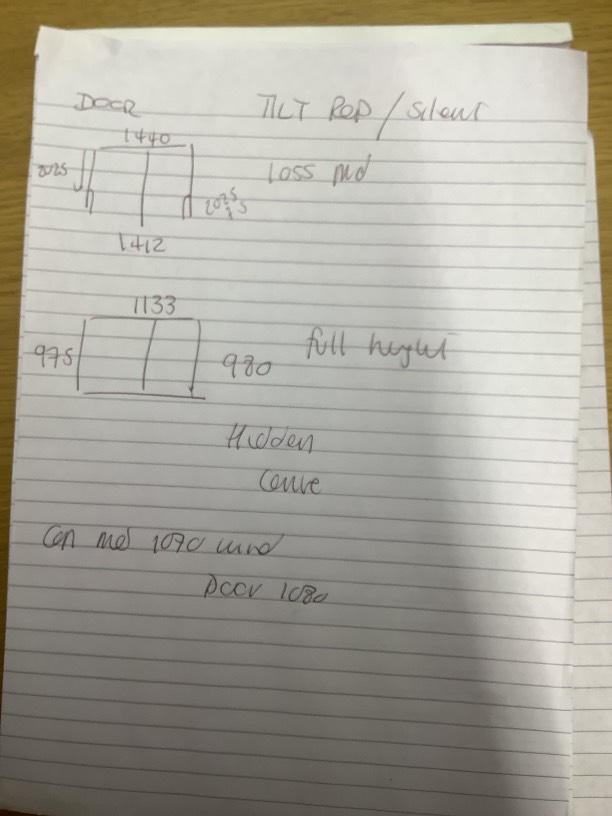 DOOR TILT ROD / Silent
1440
2025 Loss md
2025
1412
1133
975 980 full height
Hidden
Cen md 1090 wind
Door 1080